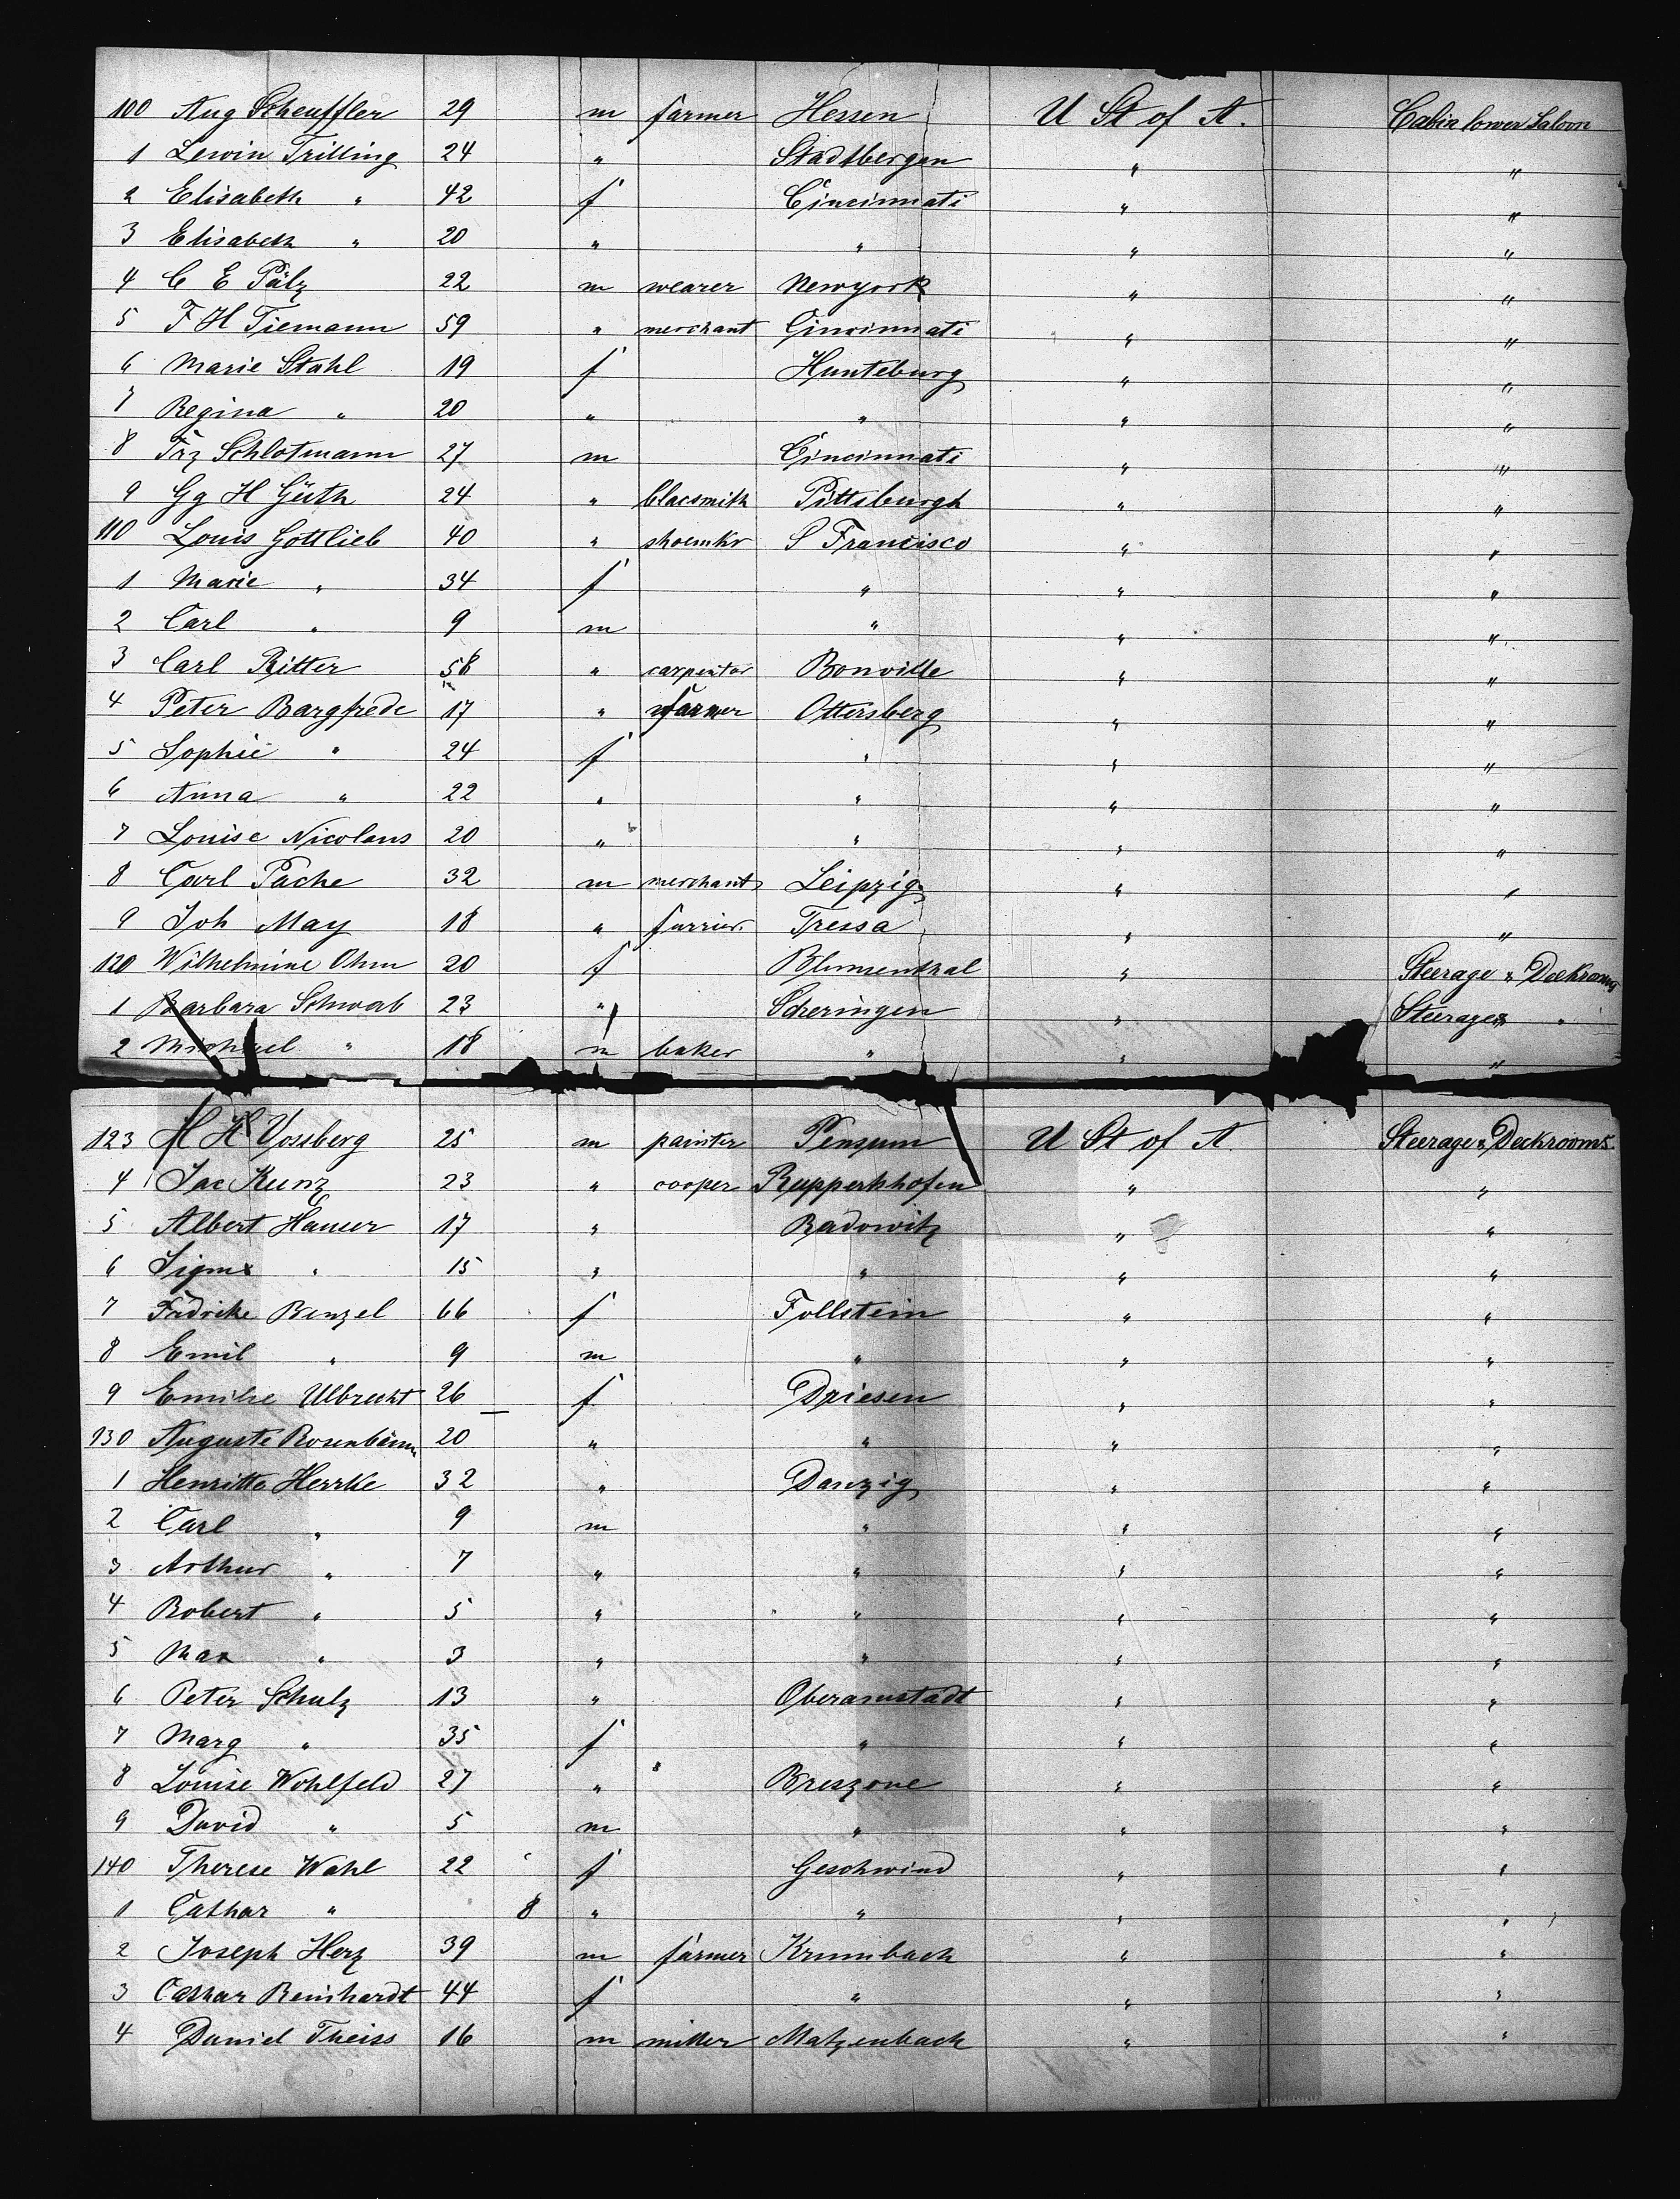 100 Aug Scheuffler 29 m farmer Hessen U St of A. Cabin lower Saloon
1 Lewin Trilling 24 " Stadtbergen " "
2 Elisabeth " 42 f Cincinnati " "
3 Elisabeth " 20 " " " "
4 C E Pälz 22 m wearer Newyork " "
5 F H Tiemann 59 " merchant Cincinnati " "
6 Marie Stahl 19 f Hunteburg " "
7 Regina " 20 " " " "
8 Frz Schlotmann 27 m Cincinnati " "
9 Gg H Güth 24 " blacsmith Pittsburgh " "
110 Louis Gottlieb 40 " shoemkr S Francisco " "
1 Marie " 34 f " " "
2 Carl " 9 m " " "
3 Carl Ritter 58 " carpenter Bonville " "
4 Peter Bargfrede 17 " farmer Ottersberg " "
5 Sophie " 24 f " " "
6 Anna " 22 " " " "
7 Louise Nicolaus 20 " " " "
8 Carl Pache 32 m merchant Leipzig " "
9 Joh May 18 " furrier Tressa " "
120 Wilhelmine Ohm 20 f Blumenthal " Steerage & Deckrooms
1 Barbara Schwab 23 " Scheringen " Steerage & "
2 Michael " 18 m baker " " "
123 H H Vossberg 25 m painter Pensum U St of A. Steerage & Deckrooms
4 Jac Kunz 23 " cooper Ruppertshofen " "
5 Albert Hamer 17 " Badowitz " "
6 Sigm " 15 " " " "
7 Fridrike Benzel 66 f Follstein " "
8 Emil " 9 m " " "
9 Emilie Ulbrecht 26 f Driesen " "
130 Auguste Rosenbaum 20 " " " "
1 Henritte Herrke 32 " Danzig " "
2 Carl " 9 m " " "
3 Arthur " 7 " " " "
4 Robert " 5 " " " "
5 Max " 3 " " " "
6 Peter Schulz 13 " Oberamstadt " "
7 Marg " 35 f " " "
8 Louise Wohlfeld 27 " Breszone " "
9 David " 5 m " " "
140 Therese Wahl 22 f Geschwind " "
1 Cathar " 8 " " " "
2 Joseph Herz 39 m farmer Krumbach " "
3 Cathar Reinhardt 44 f " " "
4 Daniel Theiss 16 m miller Matzenbach " "